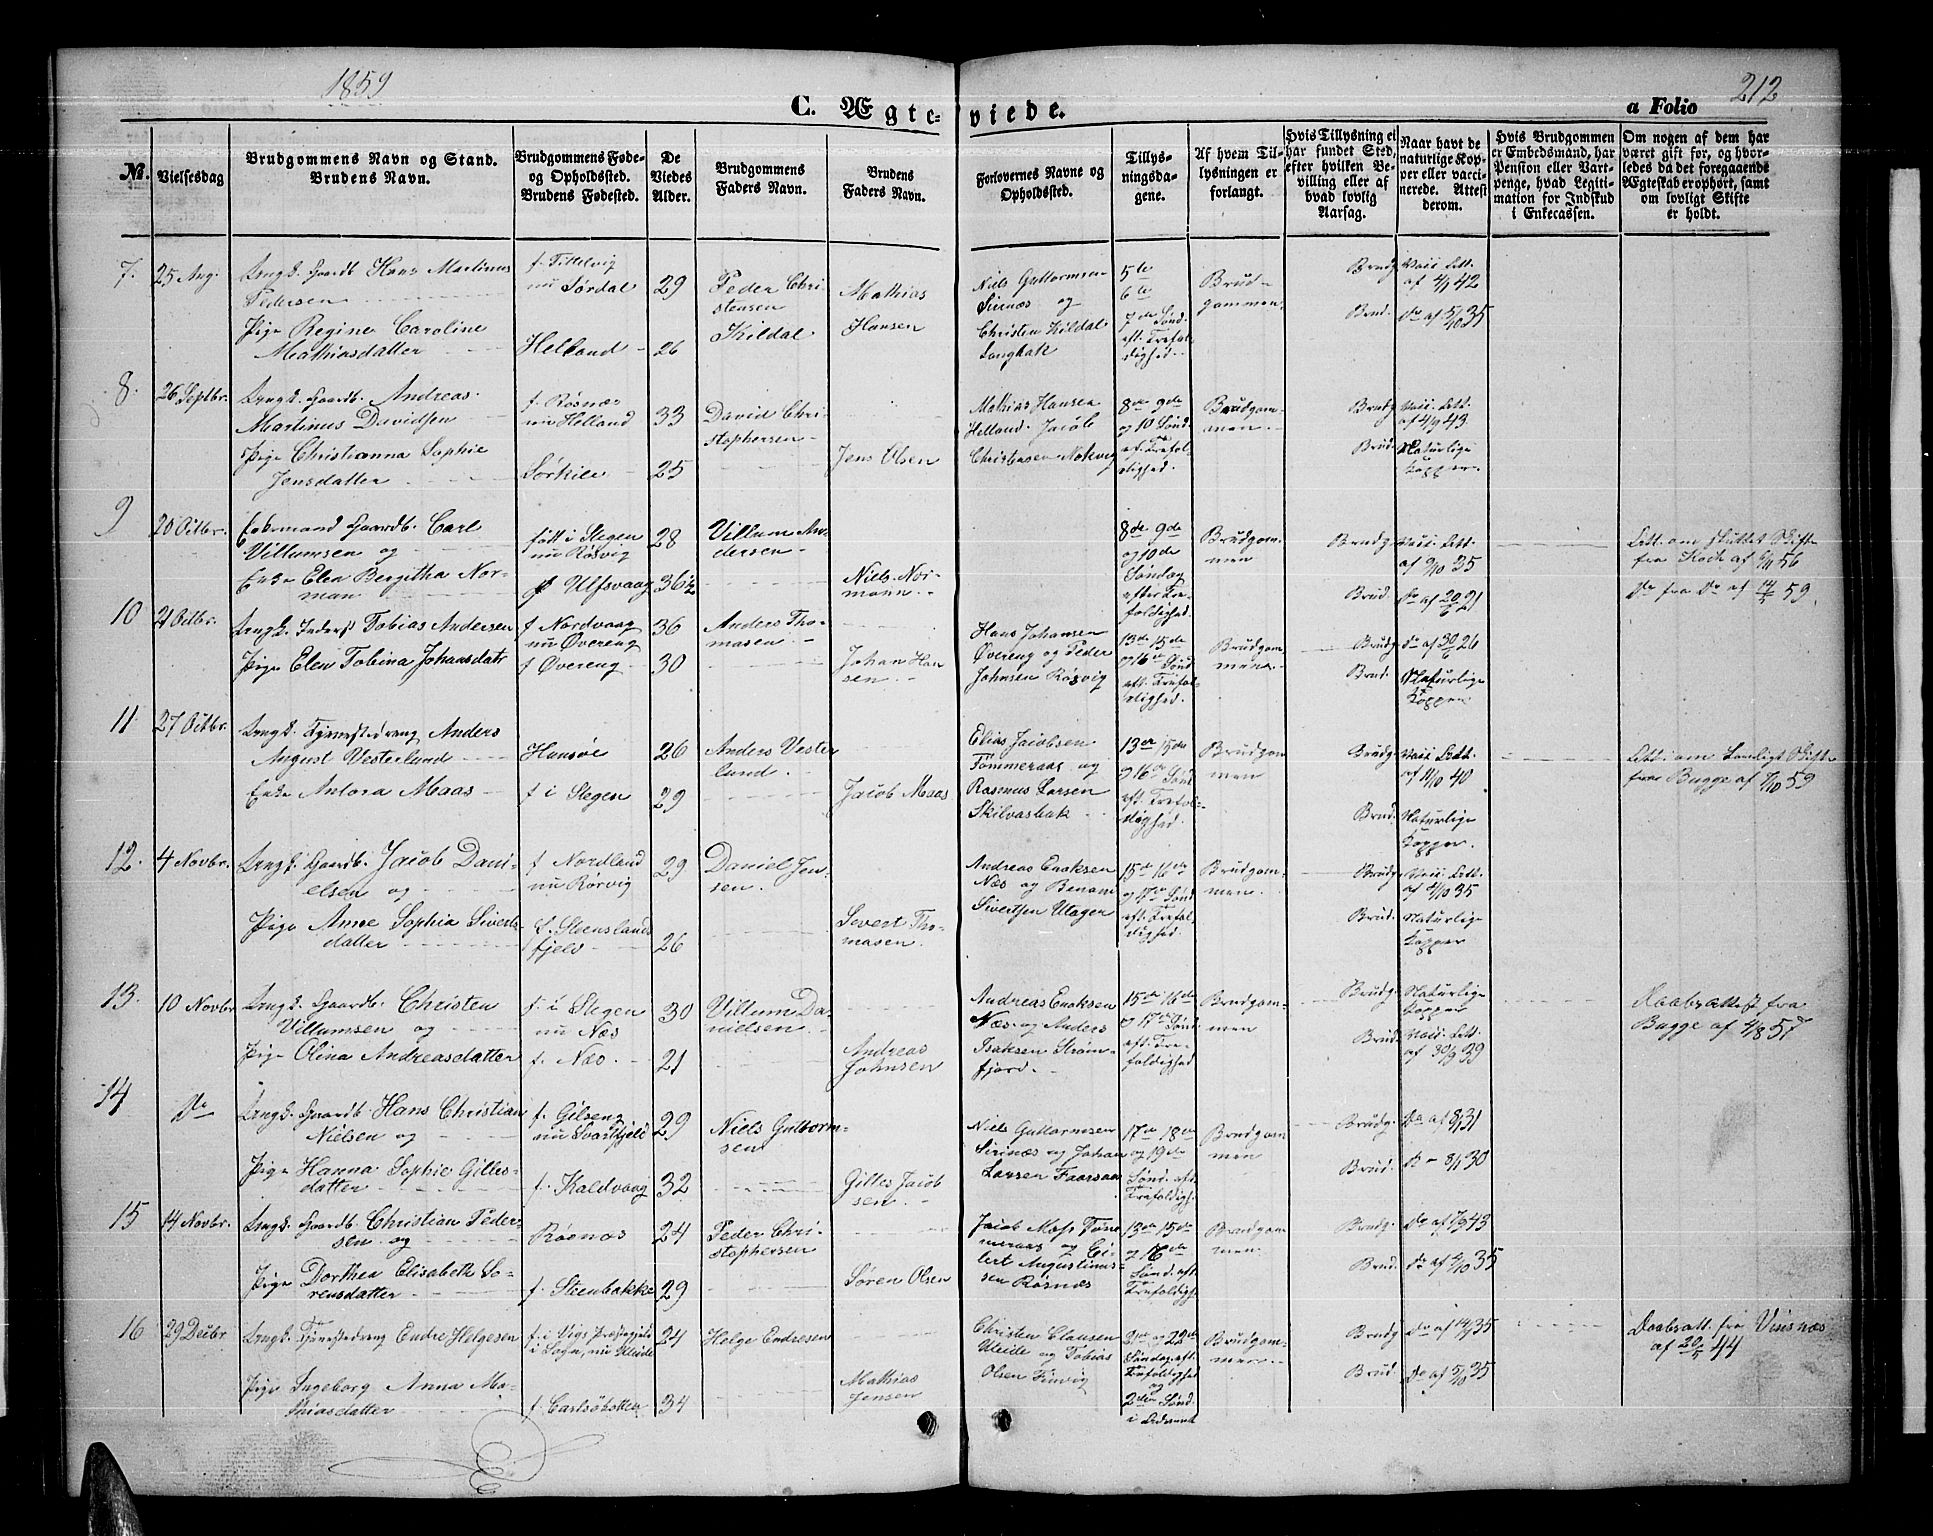 1859
212
C. Ægteviede.
a Folio
No.
Vielsesdag
Brudgommens Navn og Stand.
Brudens Navn.
Brudgommens Føde-
og Opholdssted.
Brudens Fødested.
De
Viedes
Alder.
Brudgommens
Faders Navn.
Brudens
Faders Navn.
Forlovernes Navne og
Opholdssted.
Tillys-
ningsda-
gene.
Af hvem Til-
lysningen er
forlangt.
Hvis Tillysning ei
har fundet Sted,
efter hvilken Be-
villing eller af
hvad lovlig
Aarsag.
Naar havt de
naturlige Kop-
per eller vacci-
nerede. Attest
derom.
Hvis Brudgommen
er Embedsmand, har
Pension eller Vart-
penge, hvad Legiti-
mation for Indskud
i Enkecassen.
Om nogen af dem har
været gift før, og hvor-
ledes da det foregaaende
Ægteskab er ophørt, samt
om lovligt Skifte
er holdt.
7. 25 Aug.
Ungk. Gaardb. Hans Martinus
Pedersen
Pige Regine Caroline
Mathiasdatter
nu Sørdal
Helland
29
26
Peder Chri-
stensen
Kildal
Mathias
Hansen
Niels Guttormsen
Sirnæs og
Christen Kildal
5te
6te
7de Sønd.
eft. Trefol-
dighed.
Brud-
gommen
Brudg.
Brud.
Vacc. Att.
af 4/9 42
Do af 5/10 35
8. 26 Septbr.
Ungk. Gaardb. Andreas
Martinus Davidsen
Pige Christianna Sophie
Jensdatter
f. Røsnæs
nu Helland
Sørkile
33
25
David Chri-
stophersen
Jens Olsen
Mathias Hansen
Helland. Jacob
Christensen Makvig
8de 9de
og 10 Sønd.
eft. Trefol-
dighed.
Brudgom-
men
Brudg.
Brud.
Vacc. Att.
af 4/9 43
Naturlige
Kopper
9 20 Octbr.
Enkemand Gaardb. Carl
Villumsen og
Enke Elen Bergitha Nor-
man
født i Stegen
nu Røsvig
f. Ulfsvaag
28
36½
Villum An-
dersen
Niels Nor-
mann
8de 9de
og 10de
Søndag
efter Tre-
foldighed.
Brudgom-
men
Brudg.
Brud.
Vacc. Att.
af 9/10 35
Do af 20/6 21
Att. om sluttet Skifte
fra Koch af 6/11 56
Do fra Do af 14/5 59.
10 21 Octbr.
Ungk. Inderst Tobias Andersen
Pige Elen Tobina Johansdatr
f Nordvaag
nu Øvereng
f Øvereng
36
30
Anders Tho-
masen
Johan Han
sen
Hans Johansen
Øvereng og Peder
Johnsen Røsvig
13de 15de
og 16de Sønd.
eft. Trefol-
dighed.
Brudgom
men.
Brudg.
Brud.
Do af 30/6 26
Naturlige
Kopper
11 27 Octbr.
Ungk. Tjenestedreng Anders
August Vesterlund
Enke Antora Maas
Hansøe
f i Stegen
26
29
Anders Vester
lund.
Jacob Maas
Elias Jacobsen
Tømmeraas og
Rasmus Larsen
Skilvasbak
13de 15de
og 16de Sønd.
eft. Trefol-
dighed.
Brudgom
men
Brudg.
Brud.
Vacc. Att.
af 11/10 40
Naturlige
Kopper.
Att. om Lovligt Skifte
fra Bugge af 7/10 59
12. 4 Novbr.
Ungk. Gaardb. Jacob Dani-
elsen og
Pige Anne Sophia Siverts-
datter
f Nordland
nu Rørvig
f. Steenslands
fjeld
29
26
Daniel Jen-
sen.
Severt Tho-
masen
Andreas Enoksen
Næs og Benom
Sivertsen Utager
15de 16de
og 17de Sønd.
eft. Trefol-
dighed.
Brudgom-
men.
Brudg.
Brud.
Vacc. Att.
af 4/10 35
Naturlige
Kopper
13. 10 Novbr
Ungk. Gaardb. Christen
Villumsen og
Pige Olina Andreasdatter
f. i Stegen
nu Næs
f. Næs.
30
21
Villum Da-
nielsen.
Andreas
Johnsen
Andreas Enoksen
Næs og Anders
Isaksen Strøm-
fjord.
15de 16de
og 17de Sønd.
eft. Tre-
foldighed
Brudgom-
men
Brudg.
Brud.
Naturlige
Kopper
Vacc. Att.
af 30/9 39
Daabsattest fra
Bugge af 4/8 57
14 Do
Ungk. Gaardb Hans Christian
Nielsen og
Pige Hanna Sophie Gilles-
datter
f. Gilseng
nu Svartfjeld
f. Kaldvaag
29
32
Niels Guttorm-
sen
Gilles Jacob
sen
Niels Guttormsen
Sirinæs og Johan
Larsen Faarsaa
17de 18de
og 19de
Sønd. eft.
Trefoldigh.
Brudgom
men
Brudg.
Brud.
Do af 8/9 31
Do - 8/9 30
15 14 Novbr.
Ungk. Gaardb Christian Peder-
sen og
Pige Dorthea Elisabeth Sø-
rensdatter
Røsnæs
f. Steenbakke
24
29
Peder Chri-
stophersen
Søren Olsen
Jacob Mass Tøm-
meraas og Ei-
lert Augustinus-
sen Røsnæs
13de 15de
og 16de
Sønd. eft.
Trefoldigh
Brudgom
men.
Brudg.
Brud.
Do af 7/9 43
Do af 9/10 35
16 29 Decbr
Ungk. Tjenestedreng Endre Helgesen
Pige Ingeborg Anna Ma-
thiasdatter
f. i Vigs Præstegjeld
i Sogn, nu Uleide
f. Carlsøbotten
24
34
Helge Endresen
Mathias
Jensen
Christen Clausen
Uleide og Tobias
Olsen Finvig
21de og 22de
Søndag eft.
Trefoldighed
og
2den Sønd.
i Advent
Brudgom-
men
Brudg
Brud.
Do af 14/9 35
Do af 5/10 35
Daabsatt. fra Visnæs
af 20/5 44